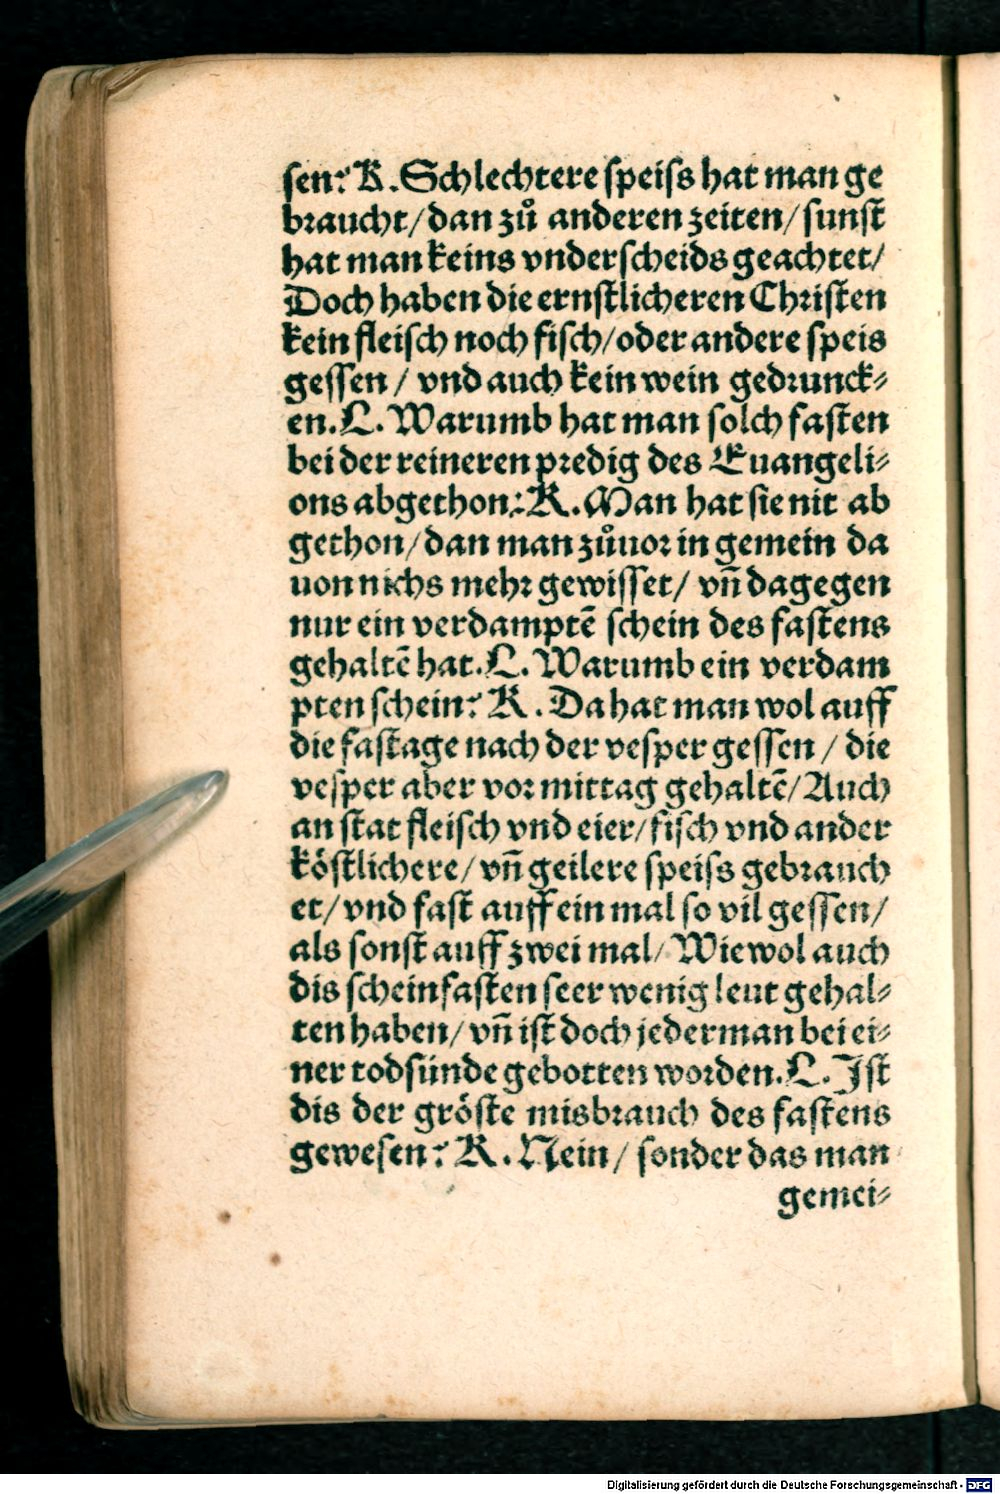 sen? K. Schlechtere speiss hat man ge
braucht/dan zuͦ anderen zeiten/sunst
hat man keins vnderscheids geachtet/
Doch haben die ernstlicheren Christen
kein fleisch noch fisch/oder andere speis
gessen / vnd auch kein wein gedrunck⸗
en. L. Warumb hat man solch fasten
bei der reineren predig des Euangeli⸗
ons abgethon? K. Man hat sie nit ab
gethon/dan man zuͦuor in gemein da
uon nichs mehr gewisset/ vn̄ dagegen
nur ein verdamptē schein des fastens
gehaltē hat. L. Warumb ein verdam
pten schein? K. Da hat man wol auff
die fastage nach der vesper gessen / die
vesper aber vor mittag gehaltē/Auch
an stat fleisch vnd eier/fisch vnd ander
köstlichere/vn̄ geilere speiss gebrauch
et/vnd fast auff ein mal so vil gessen/
als sonst auff zwei mal/Wiewol auch
dis scheinfasten seer wenig leut gehal⸗
ten haben/vn̄ ist doch jederman bei ei⸗
ner todsünde gebotten worden. L. Ist
dis der gröste misbrauch des fastens
gewesen? K. Nein/sonder das man
gemei⸗
Digitalisierung gefördert durch die Deutsche Forschungsgemeinschaft - DFG